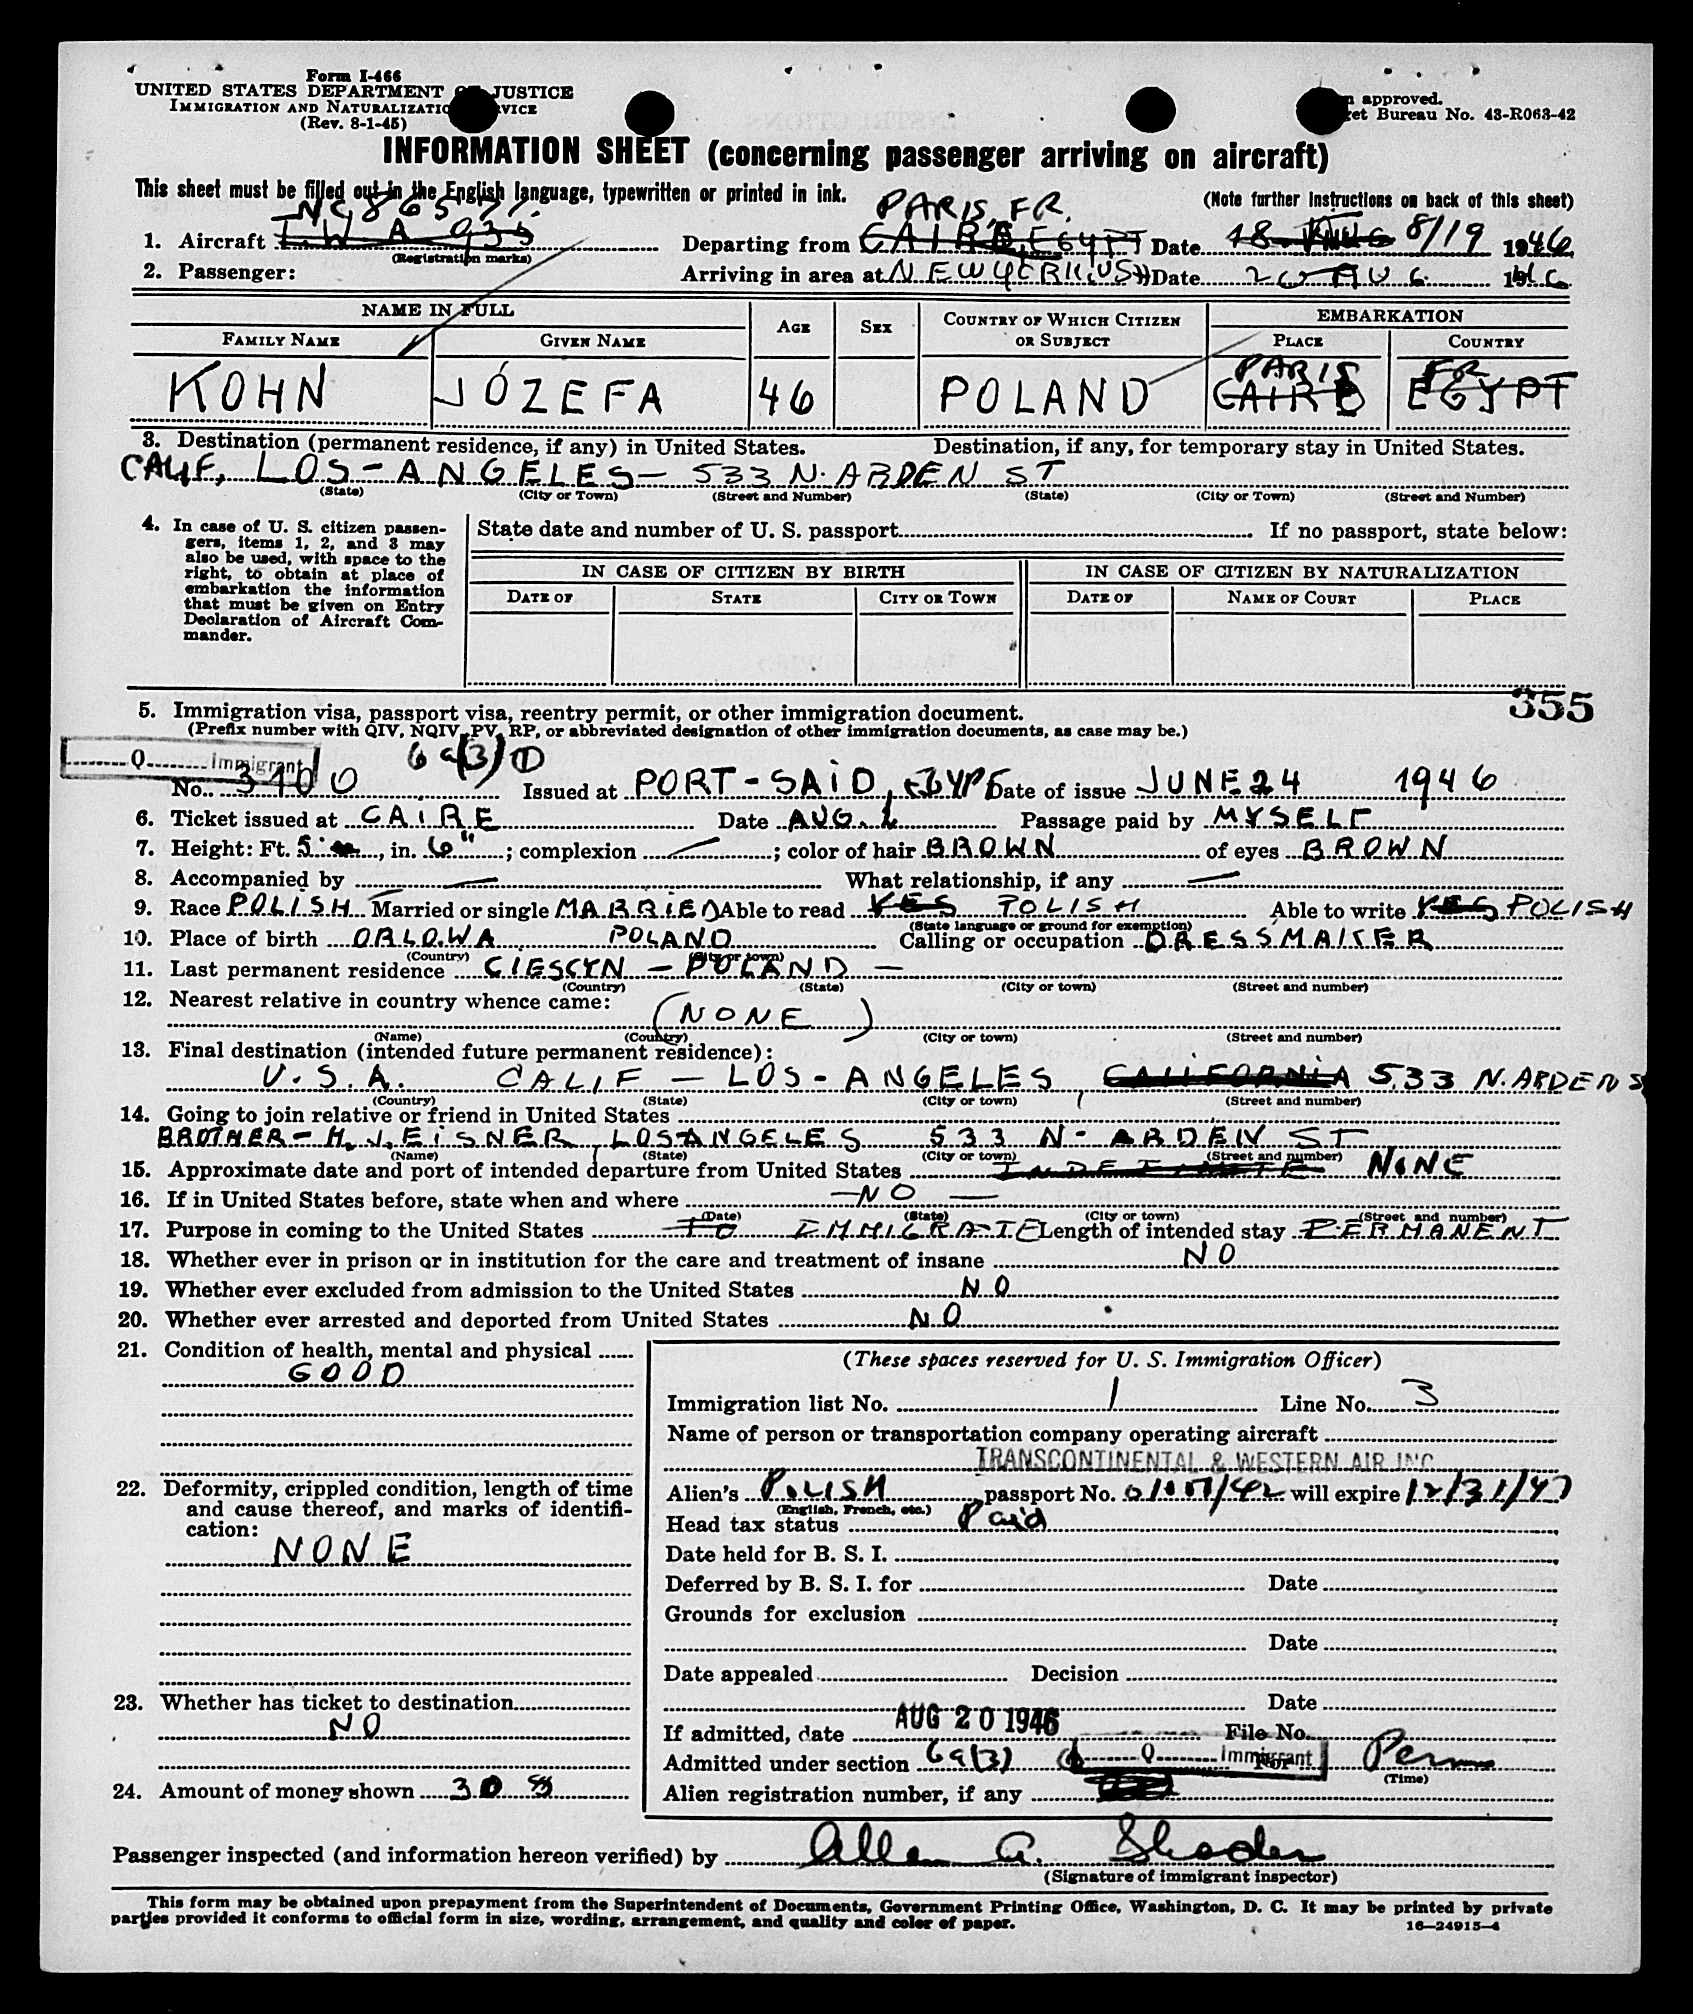 Form I-466
UNITED STATES DEPARTMENT OF JUSTICE
IMMIGRATION AND NATURALIZATION SERVICE
(Rev. 8-1-45)
approved.
Bureau No. 43-R063-42
INFORMATION SHEET (concerning passenger arriving on aircraft)
This sheet must be filled out in the English language, typewritten or printed in ink.
(Note further instructions on back of this sheet)
NC 86511 PARIS, FR.
1. Aircraft T.W.A 935 Departing from CAIRO, EGYPT Date 18 AUG 8/19 1946
(Registration marks)
2. Passenger: Arriving in area at NEWYORK (US) Date 20 AUG 1946
NAME IN FULL
FAMILY NAME GIVEN NAME AGE SEX COUNTRY OF WHICH CITIZEN OR SUBJECT EMBARKATION PLACE COUNTRY
PARIS FR
KOHN JÓZEFA 46 POLAND CAIRO EGYPT
3. Destination (permanent residence, if any) in United States. Destination, if any, for temporary stay in United States.
CALIF, LOS-ANGELES- 533 N. ARDEN ST
(State) (City or Town) (Street and Number) (State) (City or Town) (Street and Number)
4. In case of U. S. citizen passengers, items 1, 2, and 3 may also be used, with space to the right, to obtain at place of embarkation the information that must be given on Entry Declaration of Aircraft Commander.
State date and number of U. S. passport If no passport, state below:
IN CASE OF CITIZEN BY BIRTH IN CASE OF CITIZEN BY NATURALIZATION
DATE OF STATE CITY OR TOWN DATE OF NAME OF COURT PLACE
355
5. Immigration visa, passport visa, reentry permit, or other immigration document.
(Prefix number with QIV, NQIV, PV, RP, or abbreviated designation of other immigration documents, as case may be.)
Q Immigrant 6a(3)
No. 3100 Issued at PORT-SAID, EGYPT Date of issue JUNE 24 1946
6. Ticket issued at CAIRE Date AUG. Passage paid by MYSELF
7. Height: Ft. 5', in. 6"; complexion —; color of hair BROWN of eyes BROWN
8. Accompanied by — What relationship, if any —
9. Race POLISH Married or single MARRIED Able to read YES POLISH Able to write YES POLISH
(State language or ground for exemption)
10. Place of birth ORLOWA POLAND Calling or occupation DRESSMAKER
(Country) (City or town)
11. Last permanent residence CIESCYN - POLAND -
(Country) (State) (City or town) (Street and number)
12. Nearest relative in country whence came:
(NONE)
(Name) (Country) (City or town) (Street and number)
13. Final destination (intended future permanent residence):
U.S.A. CALIF - LOS-ANGELES CALIFORNIA 533 N. ARDEN S
(Country) (State) (City or town) (Street and number)
14. Going to join relative or friend in United States
BROTHER- H.J. EISNER, LOS ANGELES 533 N- ARDEN ST
(Name) (State) (City or town) (Street and number)
15. Approximate date and port of intended departure from United States INDEFINITE NONE
16. If in United States before, state when and where -NO-
(Date) (State) (City or town) (Street and number)
17. Purpose in coming to the United States TO IMMIGRATE Length of intended stay PERMANENT
18. Whether ever in prison or in institution for the care and treatment of insane NO
19. Whether ever excluded from admission to the United States NO
20. Whether ever arrested and deported from United States NO
21. Condition of health, mental and physical
GOOD
22. Deformity, crippled condition, length of time and cause thereof, and marks of identification:
NONE
23. Whether has ticket to destination
NO
24. Amount of money shown 30 $
(These spaces reserved for U. S. Immigration Officer)
Immigration list No. 1 Line No. 3
Name of person or transportation company operating aircraft
TRANSCONTINENTAL & WESTERN AIR INC
Alien's POLISH passport No. will expire 12/31/47
(English, French, etc.)
Head tax status Paid
Date held for B. S. I.
Deferred by B. S. I. for Date
Grounds for exclusion
Date
Date appealed Decision
Date
If admitted, date AUG 20 1946 File No.
Admitted under section 6a(3) Q Immigrant For Perm
(Time)
Alien registration number, if any
Passenger inspected (and information hereon verified) by Allen G.
(Signature of immigrant inspector)
This form may be obtained upon prepayment from the Superintendent of Documents, Government Printing Office, Washington, D. C. It may be printed by private
parties provided it conforms to official form in size, wording, arrangement, and quality and color of paper.
16-24915-4